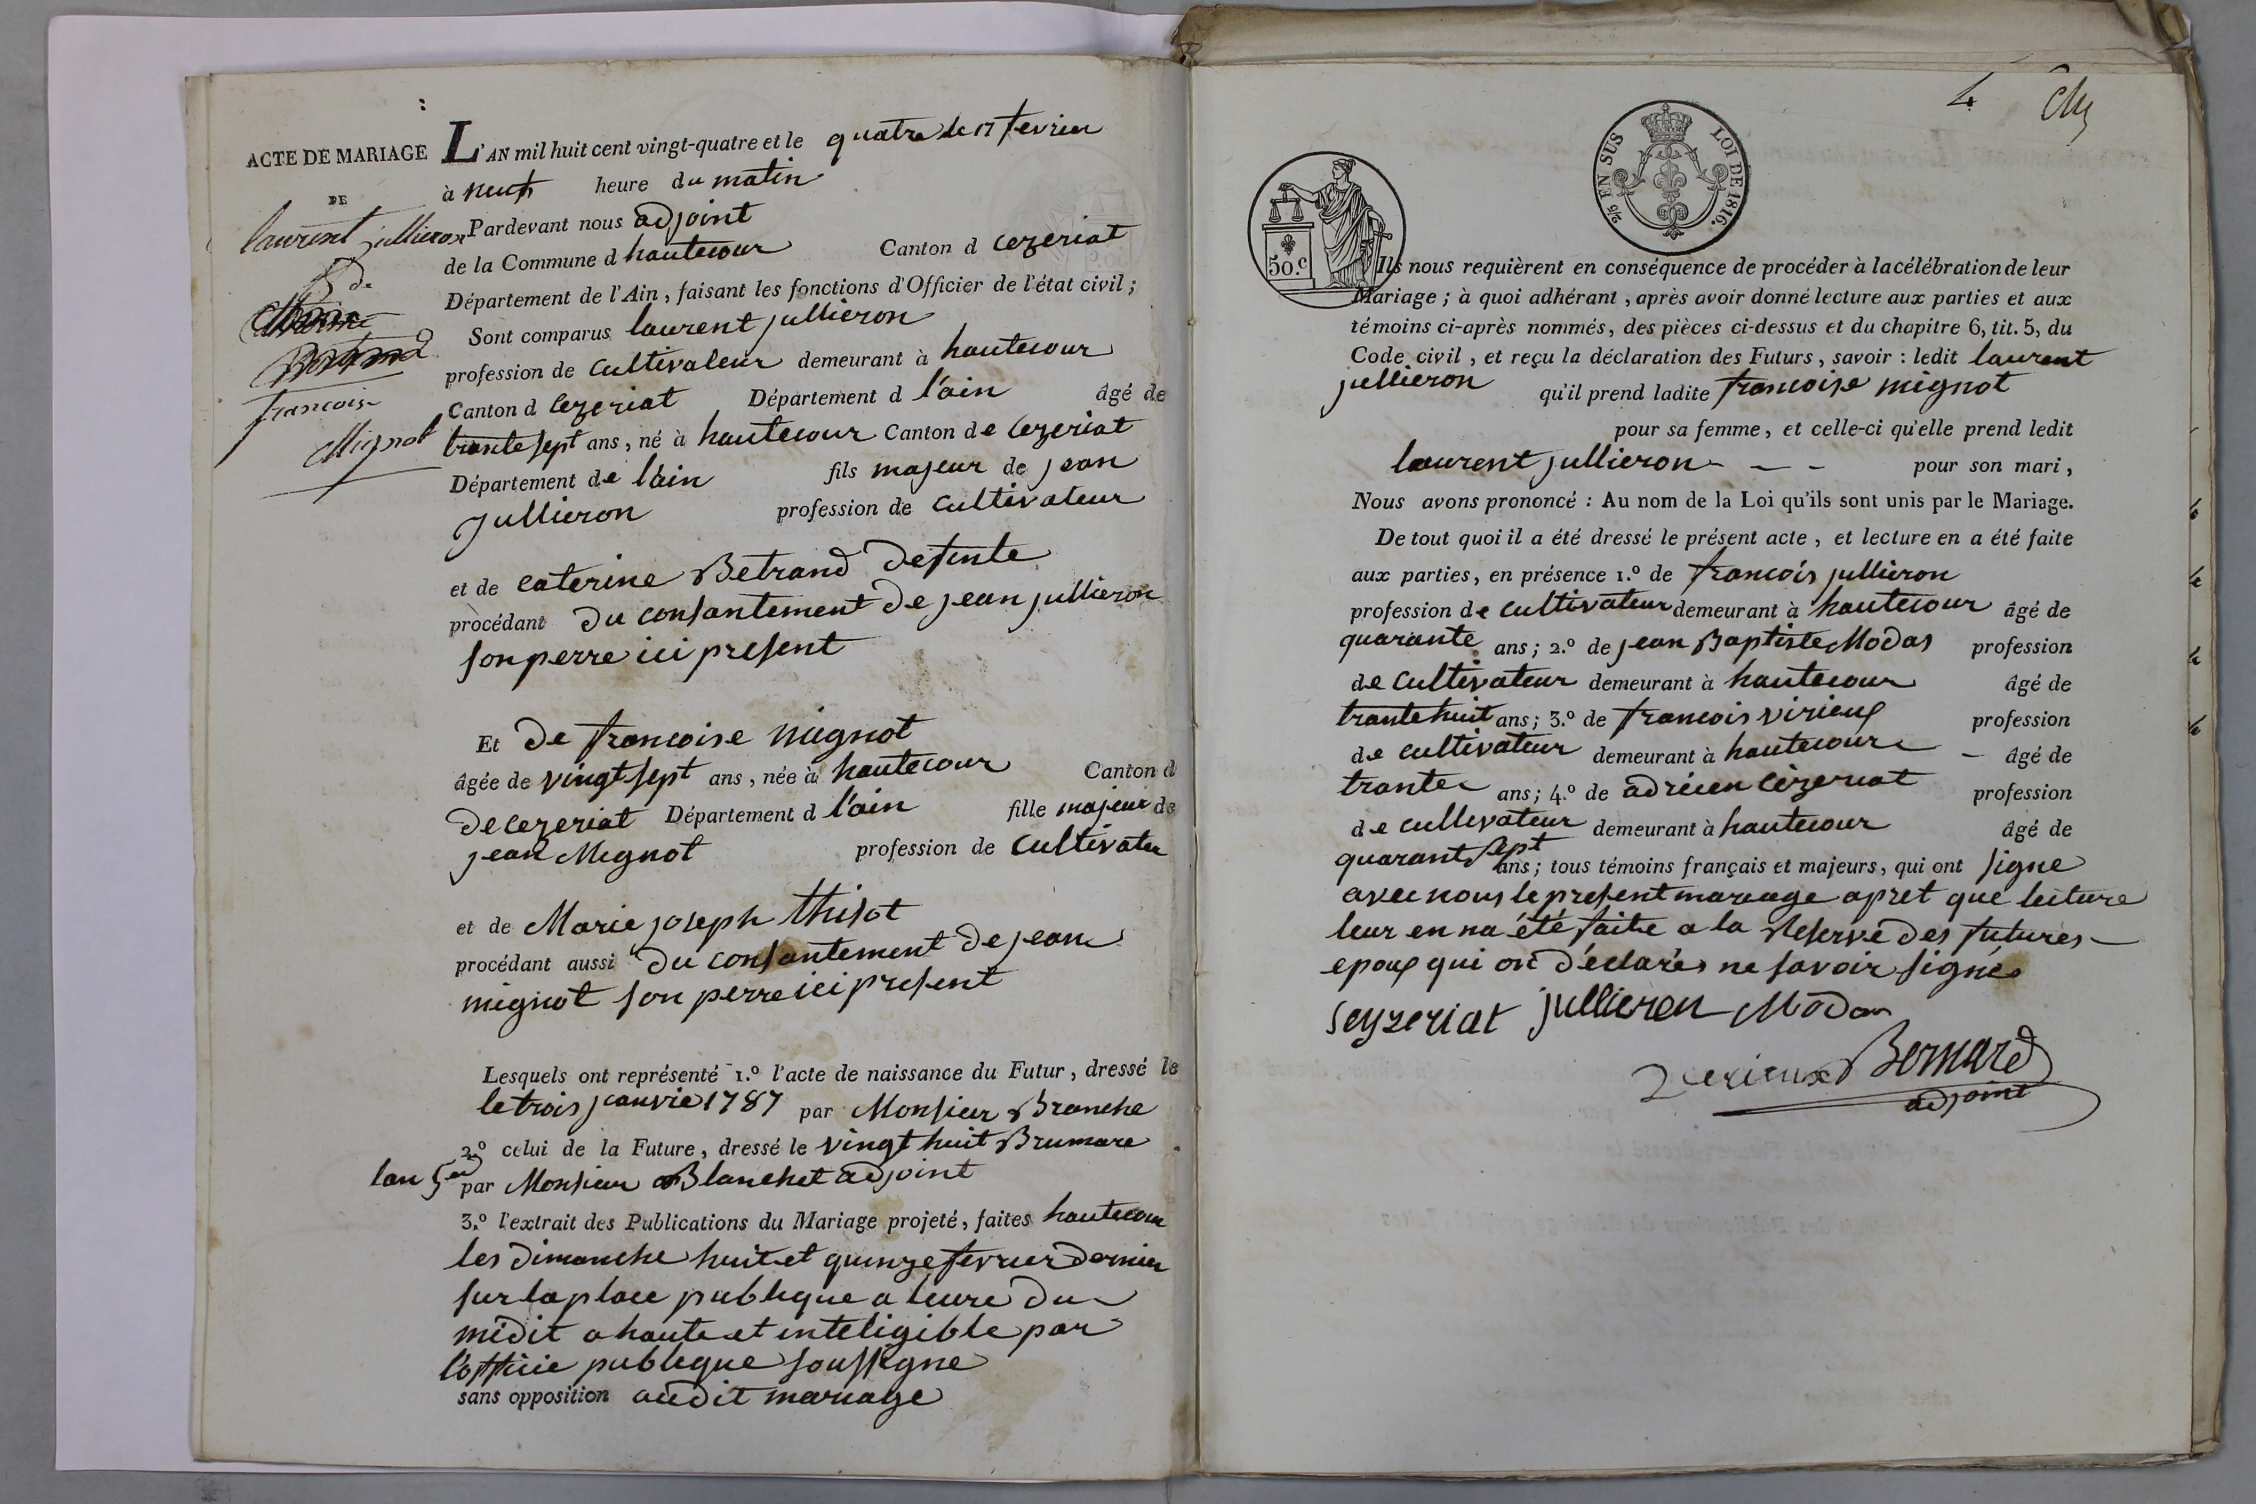 ACTE DE MARIAGE
DE
laurent jullieron
& de
francoise
Mignot
L'AN mil huit cent vingt-quatre et le quatre le 17 fevrier
à neuf heure du matin
Pardevant nous adjoint
de la Commune d hautecour Canton d cezeriat
Département de l'Ain, faisant les fonctions d'Officier de l'état civil;
Sont comparus laurent jullieron
profession de cultivateur demeurant à hautecour
Canton d cezeriat Département d l'ain âgé de
trante sept ans, né à hautecour Canton de cezeriat
Département de l'ain fils majeur de jean
jullieron profession de cultivateur
et de caterine Betrand defunte
procédant du consantement de jean jullieron
son perre ici present
Et de francoise mignot
âgée de vingt sept ans, née à hautecour Canton d
de cezeriat Département d l'ain fille majeur de
jean Mignot profession de cultivateu
et de Marie joseph thisot
procédant aussi du consantement de jean
mignot son perre ici present
Lesquels ont représenté 1.º l'acte de naissance du Futur, dressé le
le trois janvie 1787 par Monsieur Branche
2.º celui de la Future, dressé le vingt huit Brumare
lan 5 par Monsieur Blanchet adjoint
3.º l'extrait des Publications du Mariage projeté, faites hautecour
les dimanche huit et quinze fevrier dernier
sur la place publique a leure du
midit a haute et inteligible par
l'officie publique soussigne
sans opposition audit mariage
4
50.c
2/6 EN SUS LOI DE 1816.
Ils nous requièrent en conséquence de procéder à la célébration de leur
Mariage; à quoi adhérant, après avoir donné lecture aux parties et aux
témoins ci-après nommés, des pièces ci-dessus et du chapitre 6, tit. 5, du
Code civil, et reçu la déclaration des Futurs, savoir: ledit laurent
jullieron qu'il prend ladite francoise mignot
pour sa femme, et celle-ci qu'elle prend ledit
laurent jullieron - - - pour son mari,
Nous avons prononcé: Au nom de la Loi qu'ils sont unis par le Mariage.
De tout quoi il a été dressé le présent acte, et lecture en a été faite
aux parties, en présence 1.º de francois jullieron
profession de cultivateur demeurant à hautecour âgé de
quarante ans; 2.º de jean Baptiste Modas profession
de cultivateur demeurant à hautecour âgé de
trante huit ans; 3.º de francois virieux profession
de cultivateur demeurant à hautecour - âgé de
trante ans; 4.º de adrien cezeriat profession
de cultivateur demeurant à hautecour âgé de
quarant sept ans; tous témoins français et majeurs, qui ont signe
avec nous le present mariage apret que lecture
leur en na été faite a la Reserve des futures
epoux qui on déclarés ne savoir signés
seyzeriat jullieron Modas
virieux Bernard
adjoint